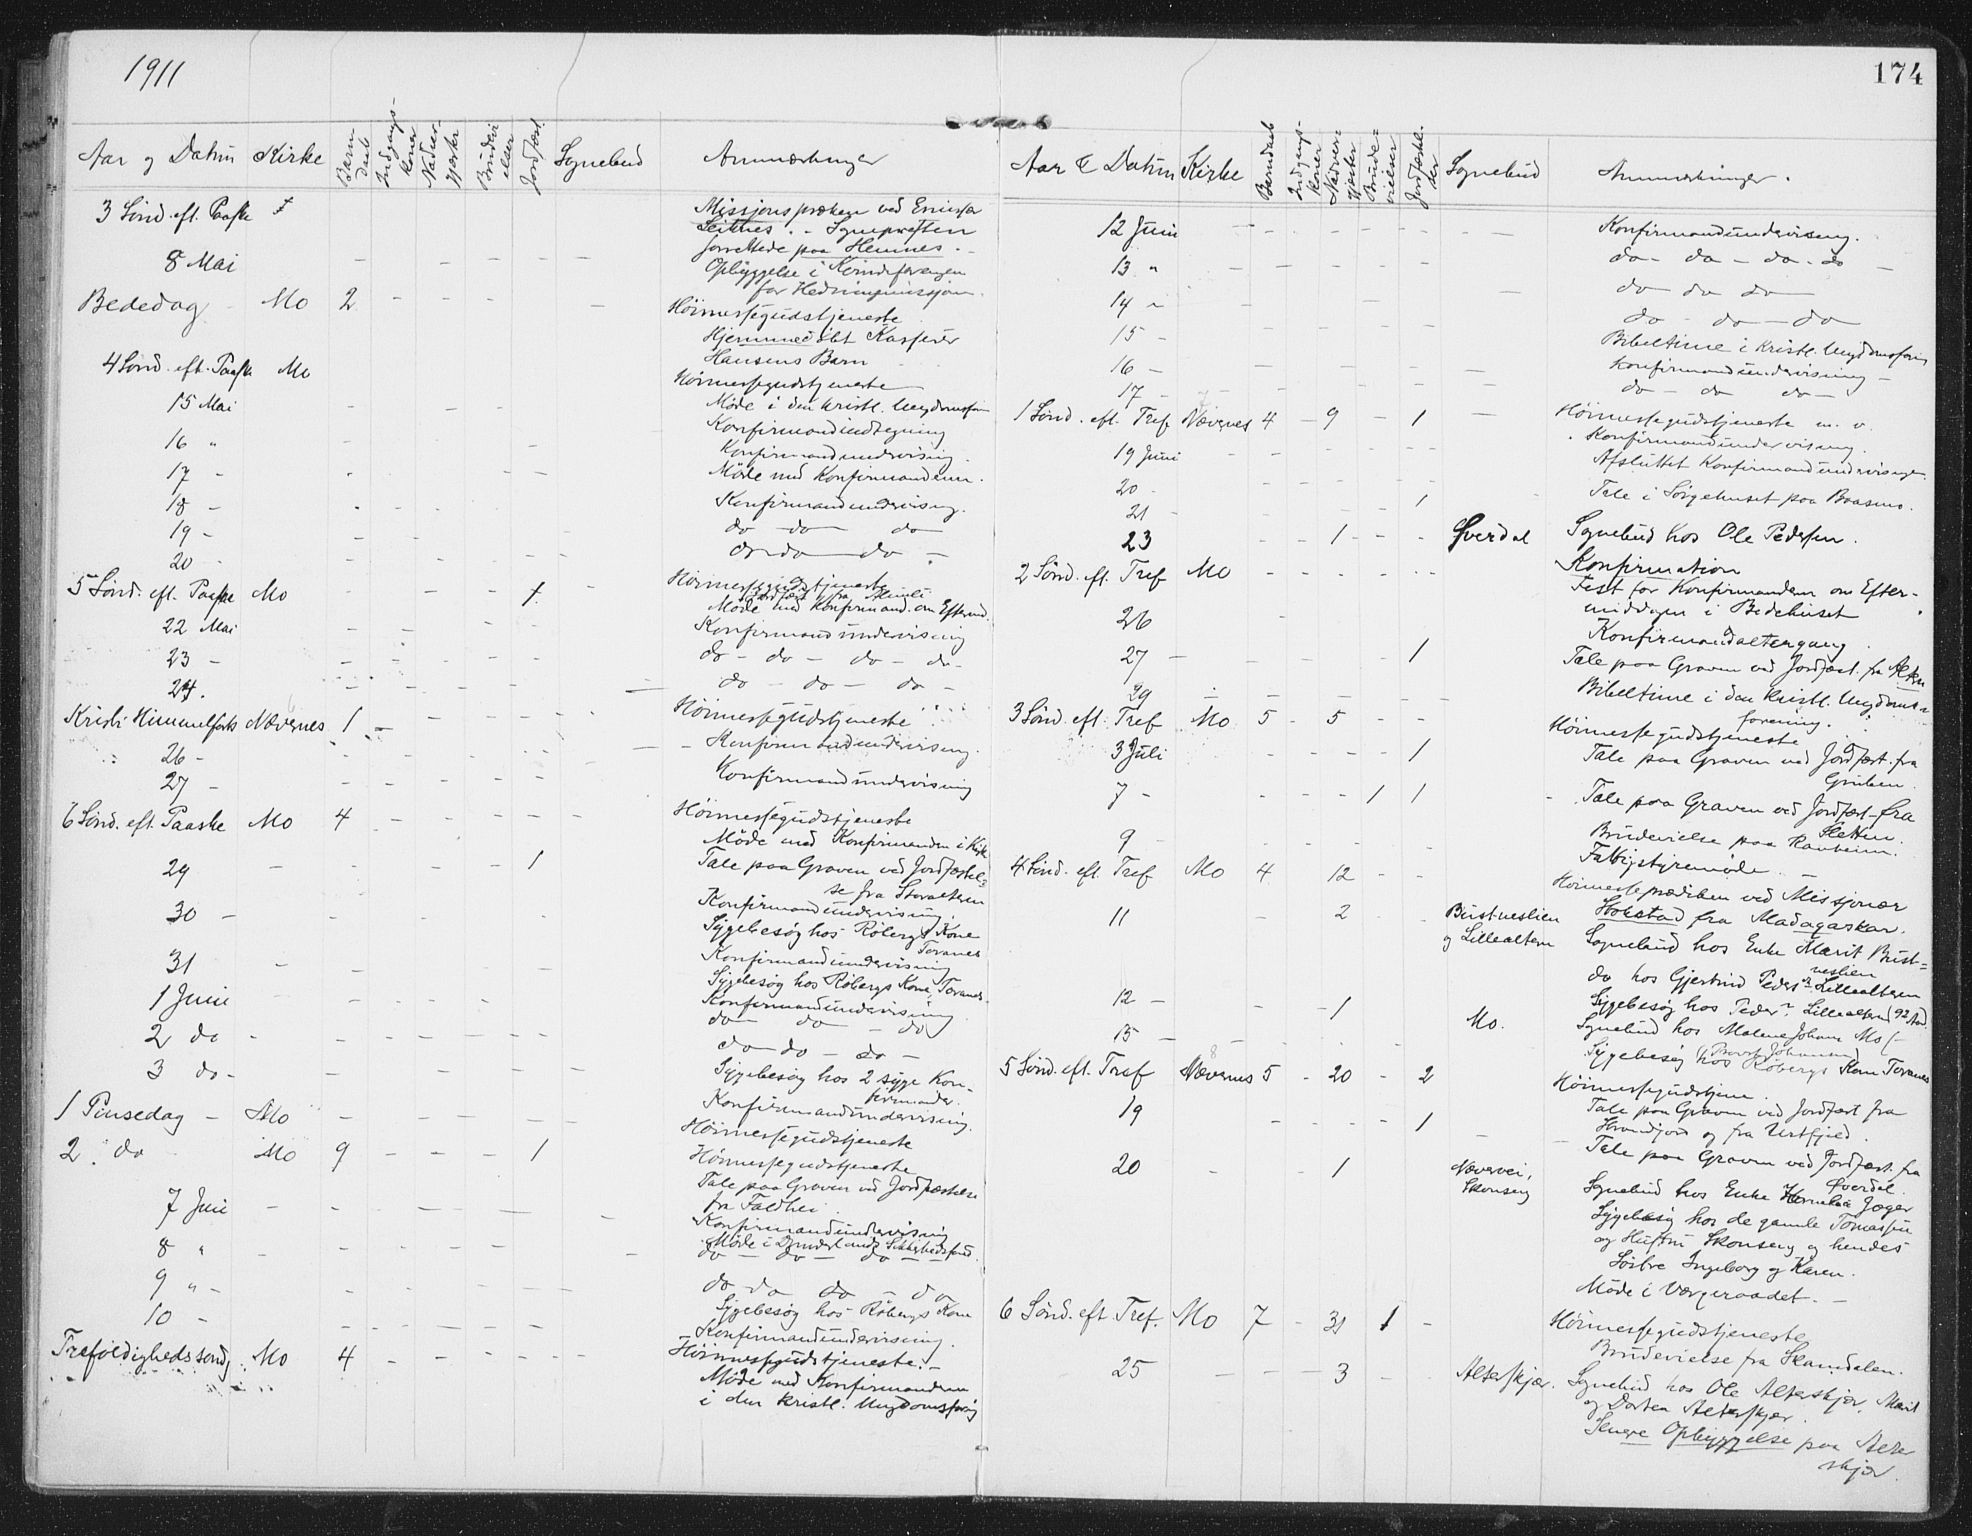 1911
Aar og Datum Kirke Barn daab Indgangs- koner Nadver- gjester Brudevi elser Jordfæst. Sognebud Anmærkninger
3 Sønd. eft. Paaske Missjonspræken ved Emissær
Leitnes. - Sognepresten
forrettede paa Hemnes. -
8 Mai Opbyggelse i Kvindeforeningen
for Hedningemissjon.
Bededag Mo 2 Høimessegudstjeneste
Hjemmedøbt Kasserer
Hansens Barn
4 Sønd. eft. Paaske Mo Høimessegudstjeneste
15 Mai Møde i den kristl. Ungdomsfor
16 " Konfirmandindtegning
Konfirmandundervisning.
17 - Møde med Konfirmanderne.
18 - Konfirmandundervisning.
19 - do - do - do
20 - do - do - do -
5 Sønd. eft. Paaske Mo 1. Høimessegudstjeneste
Jordfæst. fra
Møde med Konfirmand. om Efterm.
22 Mai Konfirmandundervisning
23 - do - do - do - do -
24. do - do - do -
Kristi Himmelfarts Nævernes 1 Høimessegudstjeneste
26 - Konfirmandundervisning.
27 - Konfirmandundervisning
6 Sønd. eft. Paaske Mo 4 Høimessegudstjeneste
Møde med Konfirmanden i Kirk
29 1 Tale paa Graven ved Jordfæstel=
se fra Storalteren
30 - Konfirmandundervisning.
Sygebesøg hos Røbergs Kone
Toranes
31 Konfirmandundervisning
Sygebesøg hos Røbergs Kone, Toranes.
1 Juni Konfirmandundervisning.
do - do - do
2 do do - do - do -
3 do - Sygebesøg hos 2 syge Kon-
firmander.
Konfirmandundervisning.
1 Pinsedag - Mo Høimessegudstjeneste
2. do Mo 9 1 Høimessegudstjeneste
Tale paa Graven ved Jordfæstelse
fra Faldhei.
7 Juni Konfirmandundervisning
Møde i
8 " do - do - do -
9 " - do - do do - do
10 - Sygebesøg hos Røbergs Kone
Konfirmandundervisning.
Trefoldighedssønd. Mo 4 Høimessegudstjeneste. -
Møde med Konfirmandern
i den kristl. Ungdomsforng
174
Aar & Datum Kirke Barndaab Indgangs- koner Nadver- gjester Brude= vielser Jordfæstel- ser Sognebud Anmærkninger.
12 Juni Konfirmandundervisning.
13 " do - do - do - do
14 " do do do
15 - do - do - do
16 - Bibeltime i kristl. Ungdomsforen
Konfirmandundervisning -
17 - do - do do -
1 Sønd. eft. Tref Nævernes 4 9 1 Høimessegudstjeneste m. v.
19 Juni Konfirmandundervisning.
20 - Afsluttet Konfirmandundervisningen
21 - 1 Tale i Sørgehuset paa Baasmo.
23 1 Øverdal Sognebud hos Ole Pedersen.
2 Sønd. eft. Tref Mo Konfirmation
Fest for Konfirmanderne om Efter-
middagen i Bedehuset
26 Konfirmandaltergang.
27 - 1 Tale paa Graven ved Jordfæst. fra Alteren
29 Bibeltime i den kristl. Ungdoms=
forening.
3 Sønd. eft. Tref Mo 5 5 Høimessegudstjeneste
3 Juli 1 Tale paa Graven ved Jordfæst. fra
Gruben.
7 - 1 1 Tale paa Graven ved Jordfæst. fra
Sletten.
Brudevielse paa Ranheim.
9 - Fattigstyremøde. -
4 Sønd. eft. Tref Mo 4 12 Høimesseprædiken ved Missjonær
Hokstad fra Madagaskar.
11 2 Bustneslien og Lillealteren Sognebud hos Enke Marit Bust=
neslien
do hos Gjertrud Peders. Lillealteren
Sygebesøg hos Peder. Lillealteren (92 Aar)
12 - 1 Mo. Sognebud hos Malene Johans Mo (-
15 - Sygebesøg hos Røbergs Kone Toranes
5 Sønd. eft. Tref Nævernes 5 20 2 Høimessegudstjene.
Tale paa Graven ved Jordfæst fra
og fra Urtfjeld.
19 1 Tale paa Graven ved Jordfæst. fra
Øverdal.
20 1 Nævernei, Skonseng Sognebud hos Enke Jæger
Sygebesøg hos de gamle Tomassen
og Hustru Skonseng og hendes
Søstre Ingeborg og Karen.
Møde i Værgeraadet. -
6 Sønd. eft. Tref. Mo 7 31 1 Høimessegudstjeneste
Brudevielse fra Skamdalen.
25 3 Alterskjær. Sognebud hos Ole Alterskjær, Marit
og Dortea Alterskjær.
Senere Opbyggelse paa Alter
skjær.